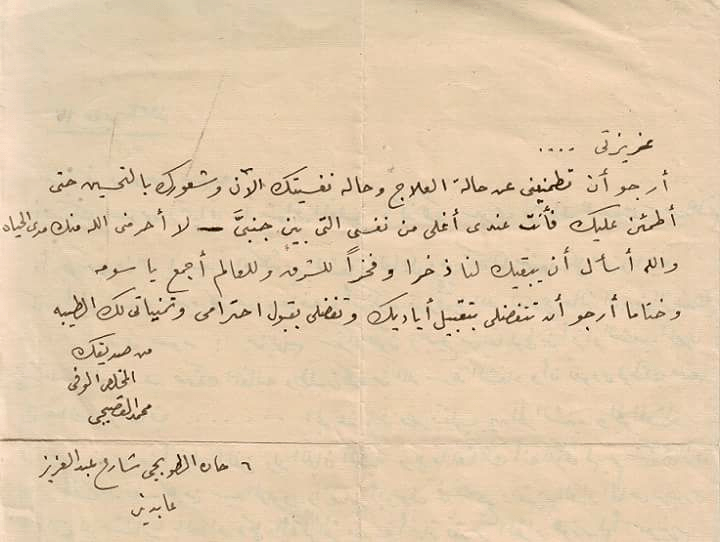 عزيزتى ....
أرجو أن تطمنينى عن حالة العلاج وحاله نفسيتك الآن وشعورك بالتحسين حتى
أطمئن عليك فأنت عندى أغلى من نفسى التى بين جنبىَّ — لا أحرمنى الله منك مدى الحياه
والله أسأل أن يبقيك لنا ذخرا وفخراً للشرق وللعالم أجمع يا سومه
وختاما أرجو أن تتفضلى بتقبيل أياديك وتفضلى بقبول احترامى وتمنياتى لك الطيبه
من صديقك
المخلص الوفى
محمد القصبجى
٦ حارة الطوبجى شارع عبد العزيز
عابدين